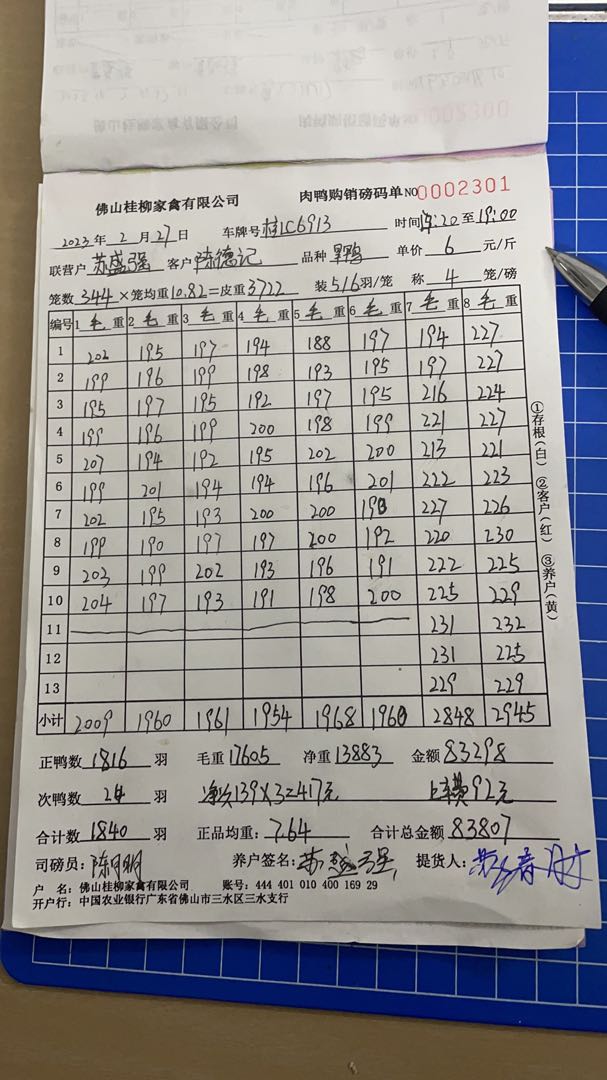 佛山桂柳家禽有限公司 肉鸭购销磅码单 NO 0002301
2023 年 2 月 27 日 车牌号 桂LC6913 时间 :20 至 19:00
联营户 苏盛强 客户 陈德记 品种 单价 6 元/斤
笼数 344 × 笼均重 10.82 = 皮重 3722 装 5/6 羽/笼 称 4 笼/磅
编号 1 毛 重 2 毛 重 3 毛 重 4 毛 重 5 毛 重 6 毛 重 7 毛 重 8 毛 重
1 202 195 197 194 188 197 194 227
2 199 196 199 198 193 195 197 227
3 195 197 195 192 197 195 216 224
4 199 196 199 200 198 199 221 227
5 207 194 192 195 202 200 213 221
6 199 201 194 194 196 201 222 223
7 202 195 193 200 200 190 227 226
8 199 190 197 197 200 192 220 230
9 203 199 202 193 196 191 222 225
10 204 197 193 191 198 200 225 229
11 231 232
12 231 225
13 229 229
小计 2009 1960 1961 1954 1968 1960 2848 2945
①存根(白) ②客户(红) ③养户(黄)
正鸭数 1816 羽 毛重 17605 净重 13883 金额 83298
次鸭数 24 羽 139×3=417元 92元
合计数 1840 羽 正品均重: 7.64 合计总金额 83807
司磅员: 陈月明 养户签名: 苏盛强 提货人:
户 名: 佛山桂柳家禽有限公司 账号: 444 401 010 400 169 29
开户行: 中国农业银行广东省佛山市三水区三水支行